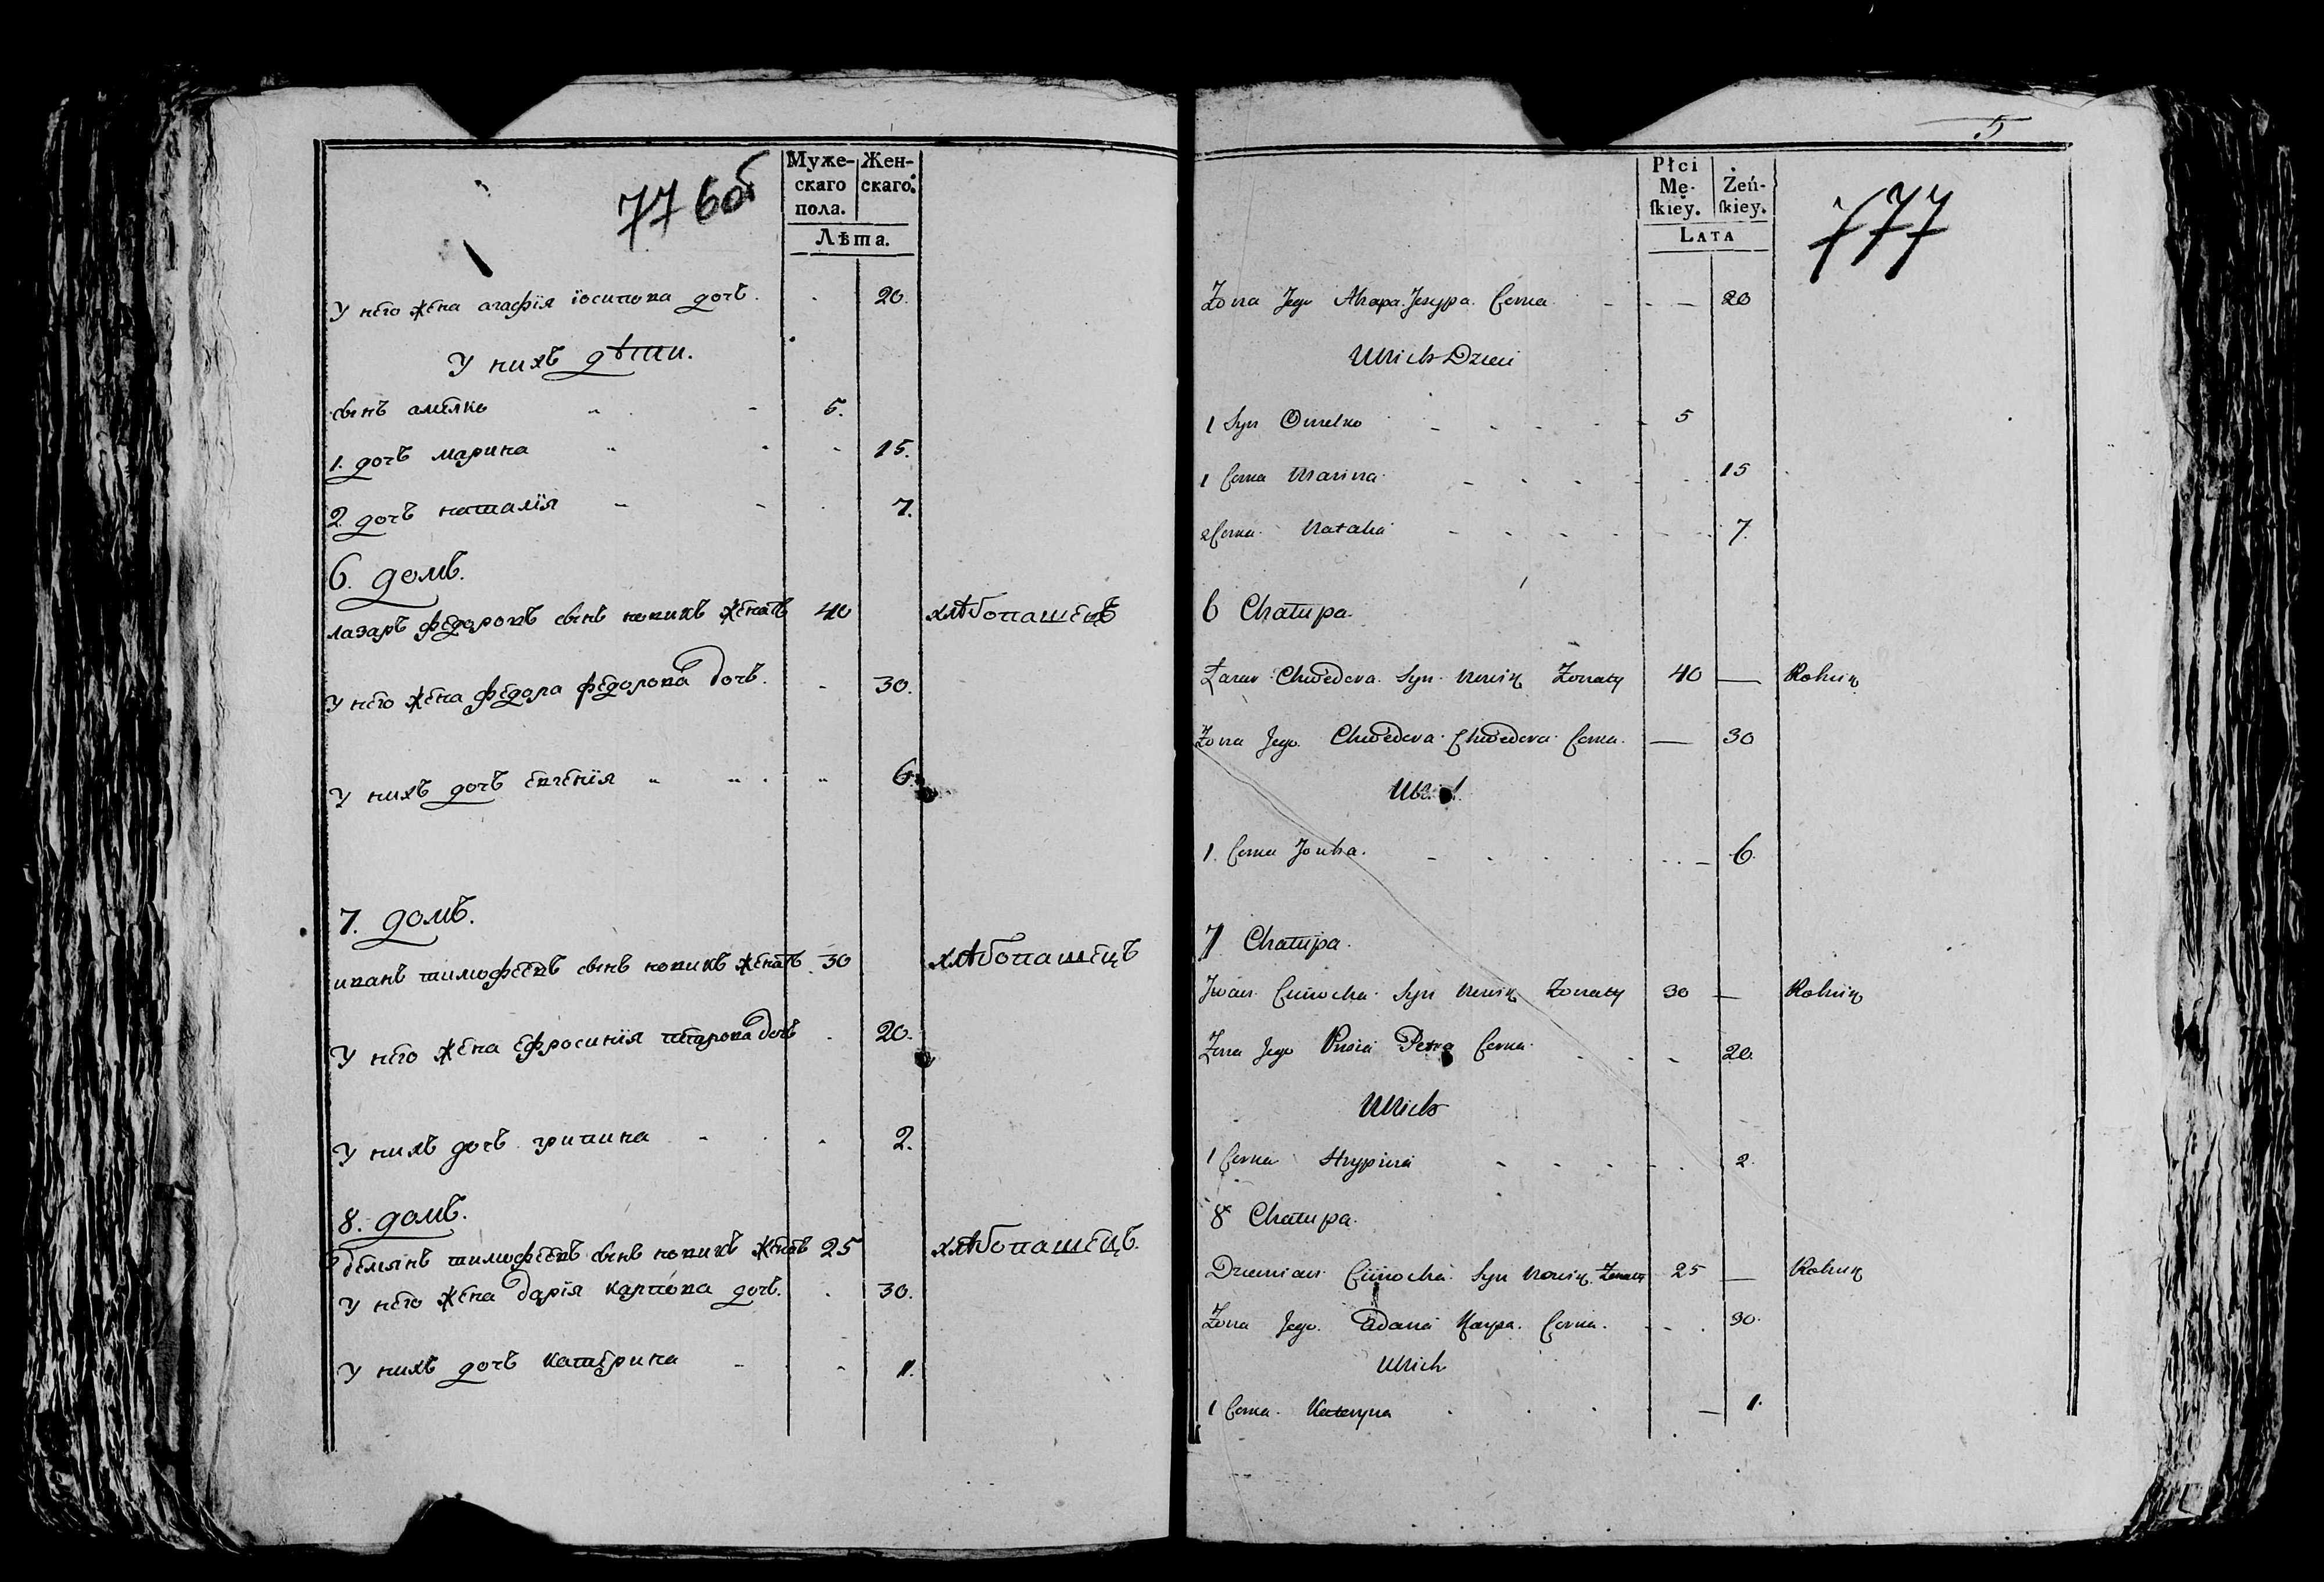 776об
Муже-
скаго
пола.
Жен-
скаго.
Лѣта.
У него жена агафїя їосипова дочъ. 20.
У нихъ дѣти.
сынъ амелко 5.
1. дочъ марина 15.
2 дочъ наталїя 7.
6. домъ.
лазаръ федоровъ сынъ новикъ женатъ 40 хлѣбопашецъ
У него жена федора федорова дочъ. 30.
У нихъ дочъ евгенїя 6.
7. домъ.
иванъ тимофеевъ сынъ новикъ женатъ 30 хлѣбопашецъ
У него жена ефросинїя петрова дочъ 20.
У нихъ дочъ грипина 2.
8. домъ.
демянъ тимофеевъ сынъ новикъ женатъ 25 хлѣбопашецъ.
У него жена дарїя карпова дочъ. 30.
У нихъ дочъ катерина 1.
5
777
Płci
Mę-
ſkiey.
Żeń-
ſkiey.
LATA
Żona Jego Ahapa Jesypa Corka 20
U Nich Dzieci
1 Syn Omelko 5
1 Corka Marina 15
2 Corka Natalia 7.
6 Chałupa.
Łazar Chwedora Syn Nowik Żonaty 40 — Rolnik
Żona Jego Chwedora Chwedora Corka — 30
1. Corka Jouha. 6.
7 Chałupa.
Jwan Cimocha Syn Nowik Żonaty 30 — Rolnik
Żona Jego Prusia Petra Corka 20.
U Nich
1 Corka Hrypina 2.
8 Chałupa.
Dziemian Cimocha Syn Nowik Żonaty 25 — Rolnik
Żona Jego Adaria Karpa Corka. 30.
U Nich
1 Corka Kateryna 1.